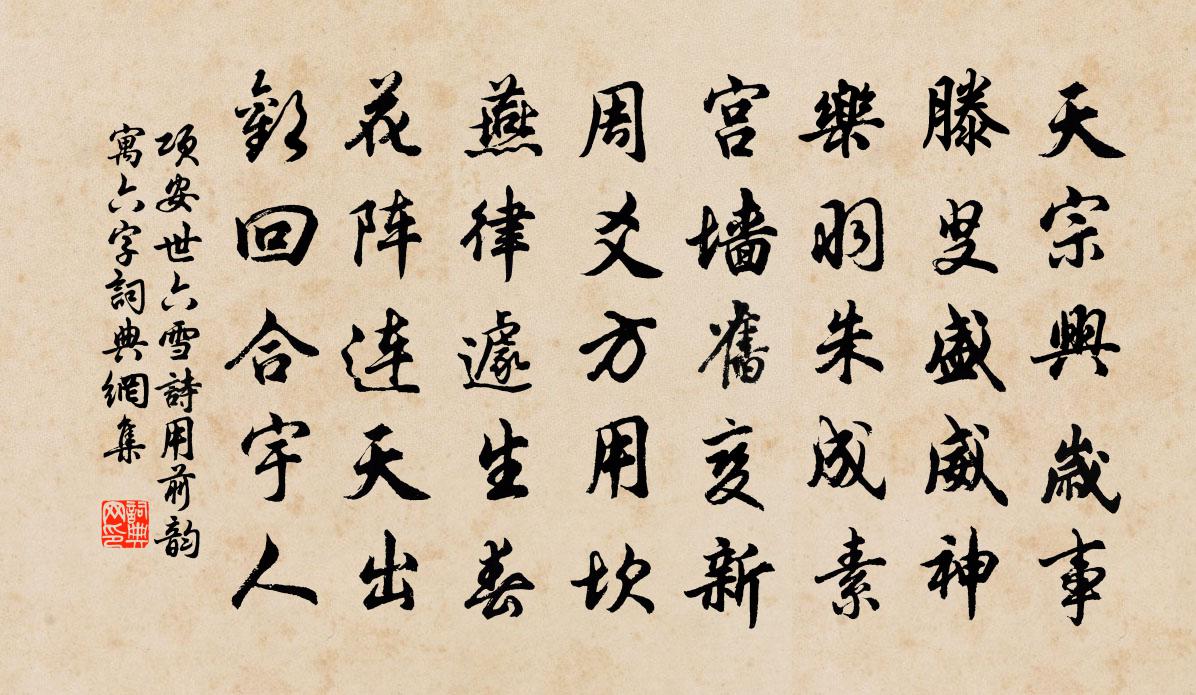 天宗興歲事
滕叟盛威神
樂羽朱成素
宫墙舊变新
周爻方用坎
燕律遽生春
花阵连天出
歡回合宇人
项安世六雪詩用前韵
寓六字詞典網集
詞典网印